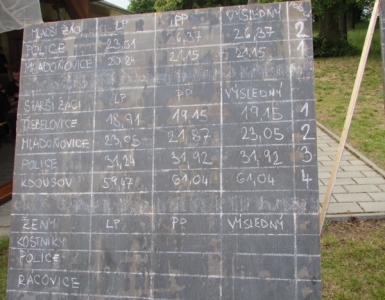 MLADŠÍ ŽÁCI LP PP VÝSLEDNÝ
POLICE 23,51 26,37 26,37 2
MLADOŇOVICE 20,24 21,15 21,15 1
STARŠÍ ŽÁCI LP PP VÝSLEDNÝ
TŘEBELOVICE 18,91 19,15 19,15 1
MLADOŇOVICE 23,05 21,87 23,05 2
POLICE 31,24 31,92 31,92 3
KDOUSOV 59,47 61,04 61,04 4
ŽENY LP PP VÝSLEDNÝ
KOSTNÍKY
POLICE
RÁCOVICE